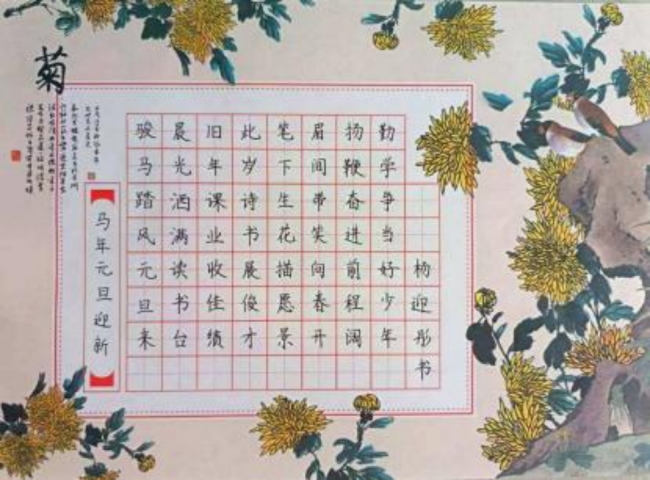 菊
马年元旦迎新
骏马踏风元旦来
晨光洒满读书台
旧年课业收佳绩
此岁诗书展俊才
笔下生花描愿景
眉间带笑向春开
扬鞭奋进前程阔
勤学争当好少年
杨迎彤书